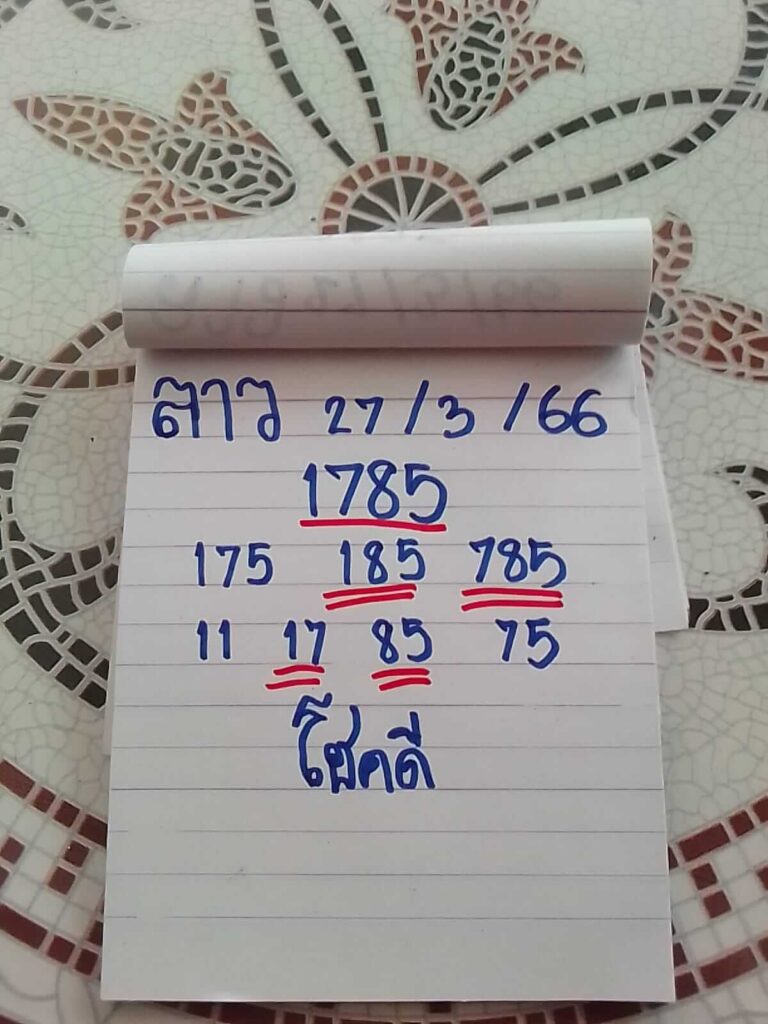 ลาว 27/3/66
1785
175 185 785
11 17 85 75
โชคดี